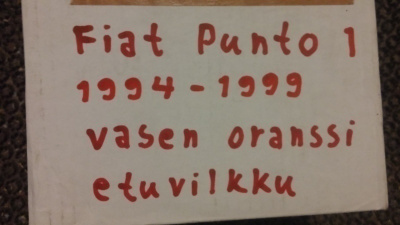 Fiat Punto 1
1994-1999
vasen oranssi
etuvilkku